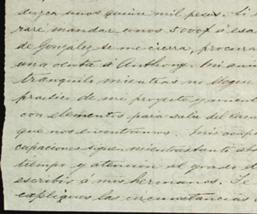 duzca unos quince mil pesos. Si
rare mandar unos 5000 f á esa
de Gonzalez se me cierra, procura
una venta á Anthony. Mi anim
tranquilo mientras no llegue
practico de mi proyecto y mient
con elementos para salir del circu
que nos encontramos. Mis ocup
cupaciones siguen mientras tanto abs
tiempo y atencion al grado d
escribir á mis hermanos. Te
expliques las circunstancias